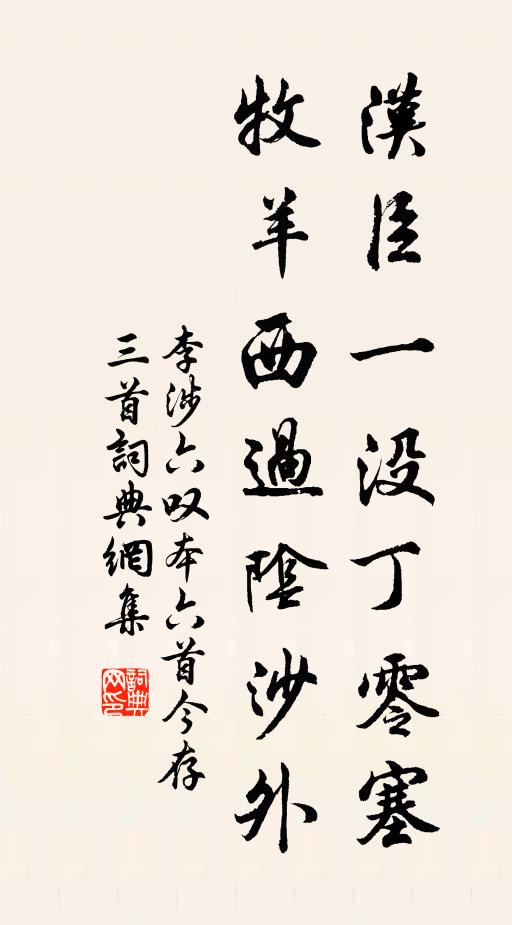 漢臣一没丁零塞
牧羊西過陰沙外
李涉六叹本六首今存
三首詞典網集
詞典
网印